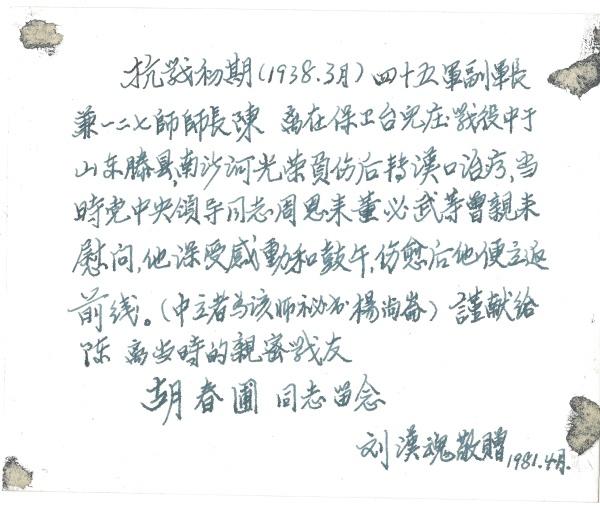 抗战初期(1938.3月)四十五軍副軍長
兼一二七師師長陳 离在保卫台兒庄战役中于
山东滕县南沙河光荣負伤后转漢口治疗,当
時党中央領导同志周恩来董必武等曾親来
慰问,他深受感動和鼓午,伤愈后他便立返
前线。(中立者为该师祕书楊尚崙)謹献给
陈 离当時的親密战友
胡春圃 同志留念
刘漢魂敬贈 1981.4月.